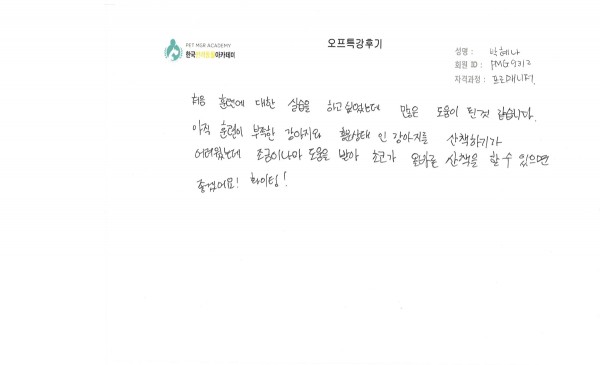 PET MGR ACADEMY
한국반려동물아카데미
오프특강후기
성명 : 박혜나
회원 ID : PMG9312
자격과정 : 펫매니저
처음 훈련에 대한 실습을 하고싶었는데 많은 도움이 된것 같습니다.
아직 훈련이 부족한 강아지와 흥분상태 인 강아지를 산책하기가
어려웠는데 조금이나마 도움을 받아 초코가 올바른 산책을 할 수 있으면
좋겠어요! 화이팅!